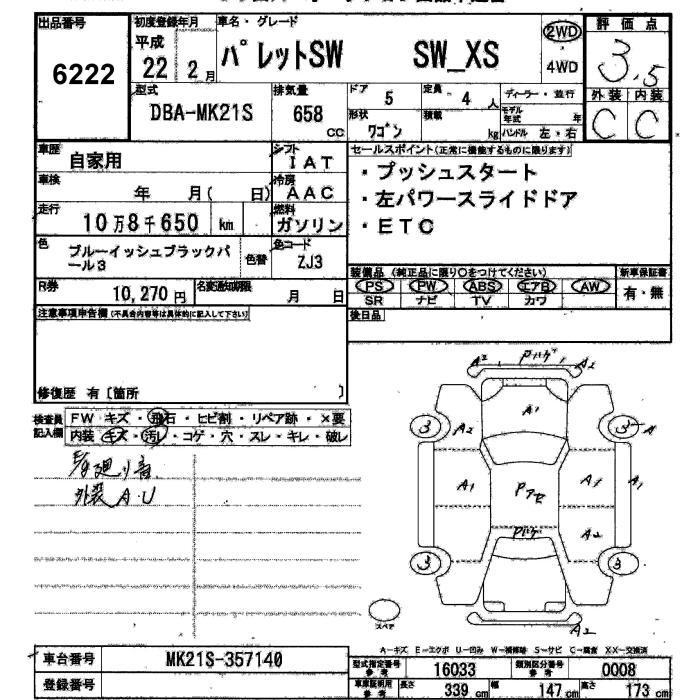 出品番号
6222
初度登録年月
平成
22 2 月
車名・グレード
パレットSW SW_XS
2WD
4WD
評価点
3.5
外装 内装
C C
型式
DBA-MK21S
排気量
658
CC
ドア 5
定員 4 人
ディーラー・並行
モデル年式 年
形状 ワゴン
積載 kg
ハンドル 左・右
車歴 自家用
シフト IAT
車検 年 月( 日)
冷房 AAC
走行 10万8千650 km
燃料 ガソリン
色 ブルーイッシュブラックパール3
色替
色コード ZJ3
R券 10,270 円
名変通知期限 月 日
セールスポイント(正常に機能するものに限ります)
・プッシュスタート
・左パワースライドドア
・ETC
装備品(純正品に限り○をつけてください)
新車保証書
PS PW ABS エアB AW
SR ナビ TV カワ
有・無
後日品
注意事項申告欄(不具合内容等は具体的に記入して下さい)
修復歴 有〔箇所 〕
検査員記入欄
FW キズ・飛石・ヒビ割・リペア跡・×要
内装 キズ・汚レ・コゲ・穴・スレ・キレ・破レ
廻り音
外装 A・U
A2 Pハゲ A2
A1
3 A2 3 A
A1 Pアセ A1 A1
Pハゲ A2
3 3
スペア
A2
A-キズ E-エクボ U-凹み W-補修跡 S-サビ C-腐食 XX-交換済
車台番号 MK21S-357140
登録番号
型式指定番号 参考 16033
類別区分番号 参考 0008
車庫証明用 参考
長さ 339 cm 幅 147 cm 高さ 173 cm